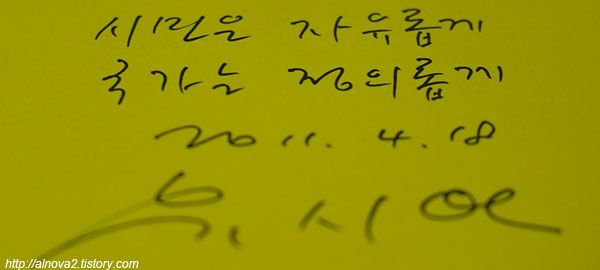 시민은 자유롭게
국가는 정의롭게
2011. 4. 18
유시민
http://alnova2.tistory.com